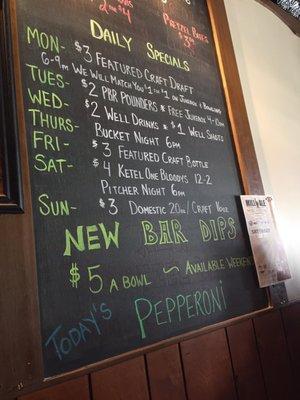 2 FOR $4
PRETZEL RODS
$3
DAILY SPECIALS
MON- $3 FEATURED CRAFT DRAFT
6-9PM WE WILL MATCH YOU $1 FOR $1 ON JUKEBOX & BOWLING
TUES- $2 PBR POUNDERS * FREE JUKEBOX 9-12PM
WED- $2 WELL DRINKS * $1 WELL SHOTS
THURS- BUCKET NIGHT 6PM
FRI- $3 FEATURED CRAFT BOTTLE
SAT- $4 KETEL ONE BLOODYS 12-2
PITCHER NIGHT 6PM
SUN- $3 DOMESTIC 20oz / CRAFT
NEW BAR DIPS
$5 A BOWL ~ AVAILABLE
TODAY'S PEPPERONI